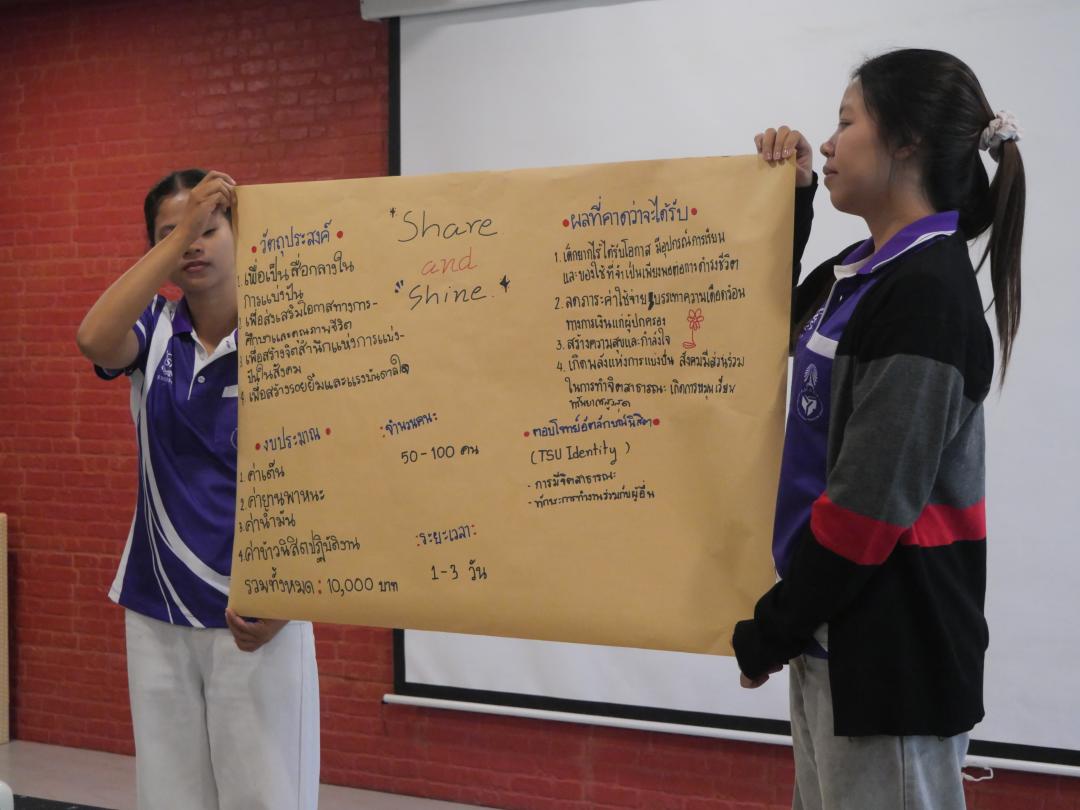 "Share
and
"Shine."
• วัตถุประสงค์ •
1. เพื่อเป็นสื่อกลางใน
การแบ่งปัน
2. เพื่อส่งเสริมโอกาสทางการ-
ศึกษาและคุณภาพชีวิต
3. เพื่อสร้างจิตสำนึกแห่งการแบ่ง-
ปันในสังคม
4. เพื่อสร้างรอยยิ้มและแรงบันดาลใจ
• งบประมาณ •
1. ค่าเต็น
2. ค่ายานพาหนะ
3. ค่าน้ำมัน
4. ค่าข้าวนิสิตปฏิบัติงาน
รวมทั้งหมด : 10,000 บาท
:จำนวนคน:
50-100 คน
:ระยะเวลา:
1-3 วัน
• ผลที่คาดว่าจะได้รับ •
1. เด็กยากไร้ได้รับโอกาส มีอุปกรณ์การเรียน
และของใช้ที่จำเป็นเพียงพอต่อการดำรงชีวิต
2. ลดภาระค่าใช้จ่าย บรรเทาความเดือดร้อน
ทางการเงินแก่ผู้ปกครอง
3. สร้างความสุขและกำลังใจ
4. เกิดพลังแห่งการแบ่งปัน สังคมมีส่วนร่วม
ในการทำจิตสาธารณะ เกิดการหมุนเวียน
• ตอบโจทย์อัตลักษณ์นิสิต •
(TSU Identity)
- การมีจิตสาธารณะ
- ทักษะการทำงานร่วมกับผู้อื่น